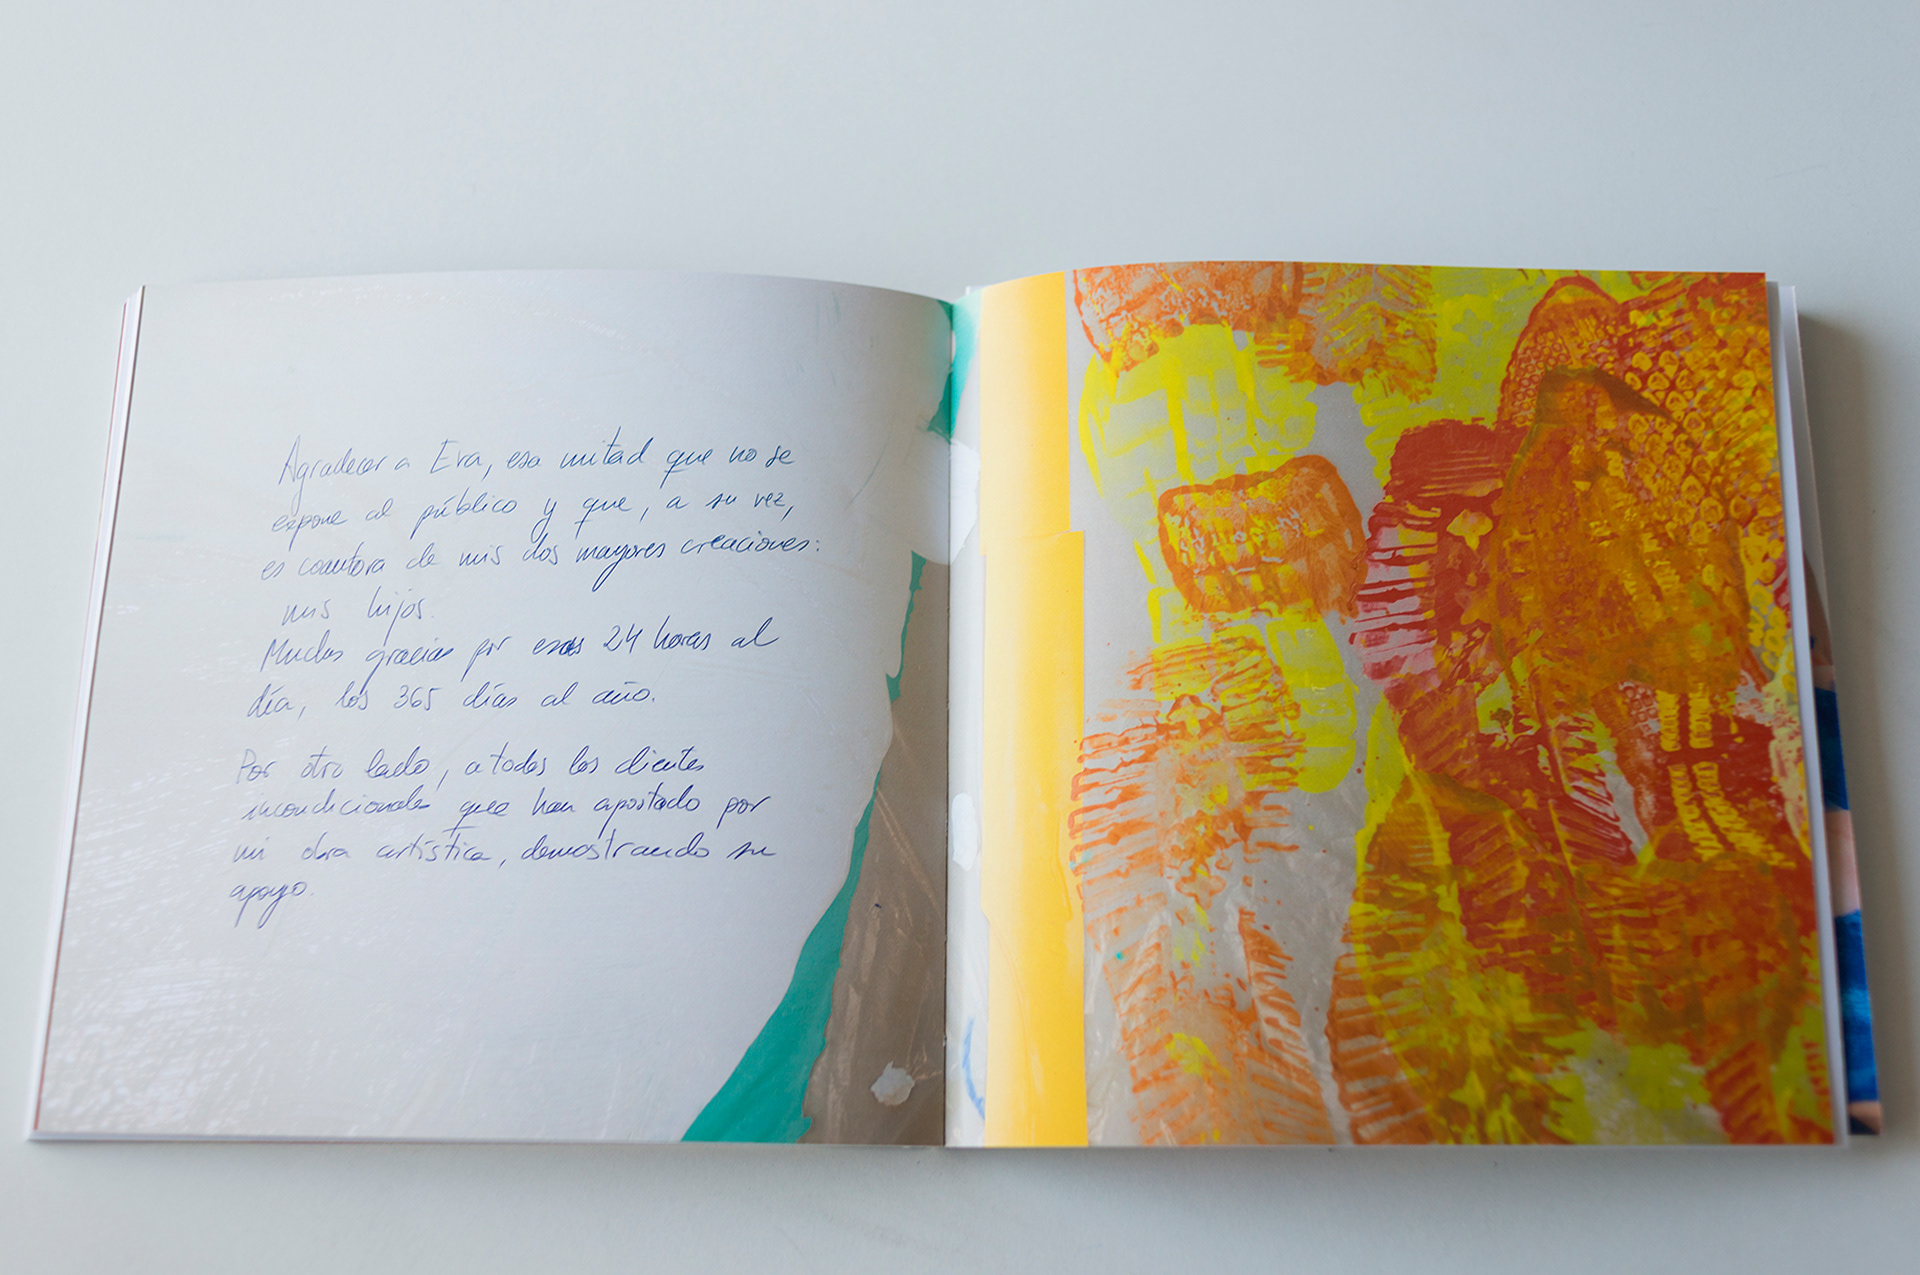 Agradecer a Eva, esa mitad que no se
expone al público y que, a su vez,
es coautora de mis dos mayores creaciones:
mis hijos.
Muchas gracias por esas 24 horas al
día, los 365 días al año.
Por otro lado, a todos los clientes
incondicionales que han apostado por
mi obra artística, demostrando su
apoyo.